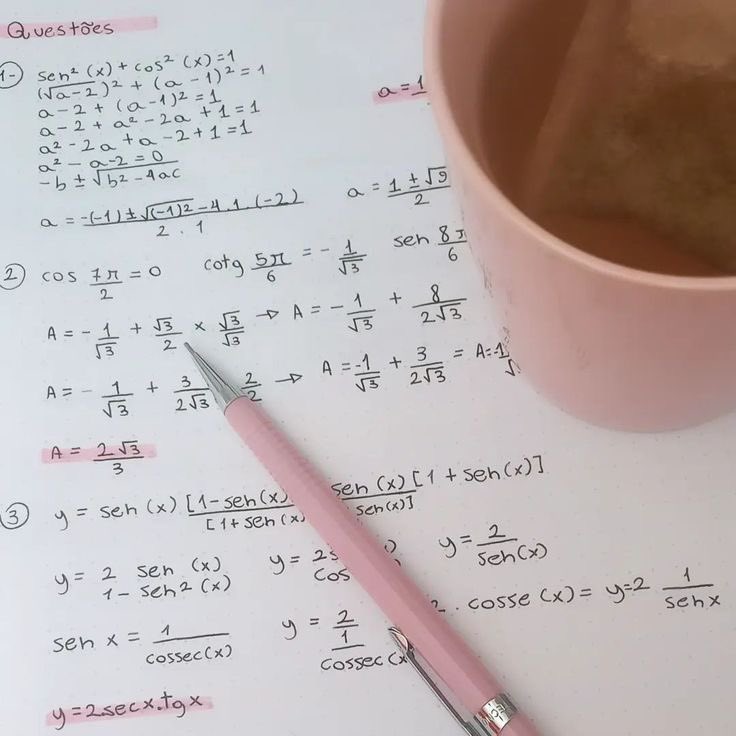 Questões
1- sen² (x) + cos² (x) = 1
(√a-2)² + (a - 1)² = 1
a - 2 + (a - 1)² = 1
a - 2 + a² - 2a + 1 = 1
a² - 2a + a - 2 + 1 = 1
a² - a - 2 = 0
-b ± √b² - 4ac
a = 1
a = -(-1) ± √(-1)² - 4 . 1 . (-2) / 2 . 1
a = 1 ± √9 / 2
2 cos 7π/2 = 0 cotg 5π/6 = - 1/√3 sen 8π/6
A = - 1/√3 + √3/2 × √3/√3 → A = - 1/√3 + 8/2√3
A = - 1/√3 + 3/2√3 2/2 → A = -1/√3 + 3/2√3 = A = -1/√
A = 2√3/3
3 y = sen (x) [1 - sen(x) sen (x) [1 + sen(x)]
[1 + sen (x) sen(x)]
y = 2 sen (x) / 1 - sen² (x) y = 2 cos y = 2/sen(x)
sen x = 1/cossec(x) y = 2 / 1/cossec(x 2 . cosse (x) = y = 2 1/sen x
y = 2secx.tgx